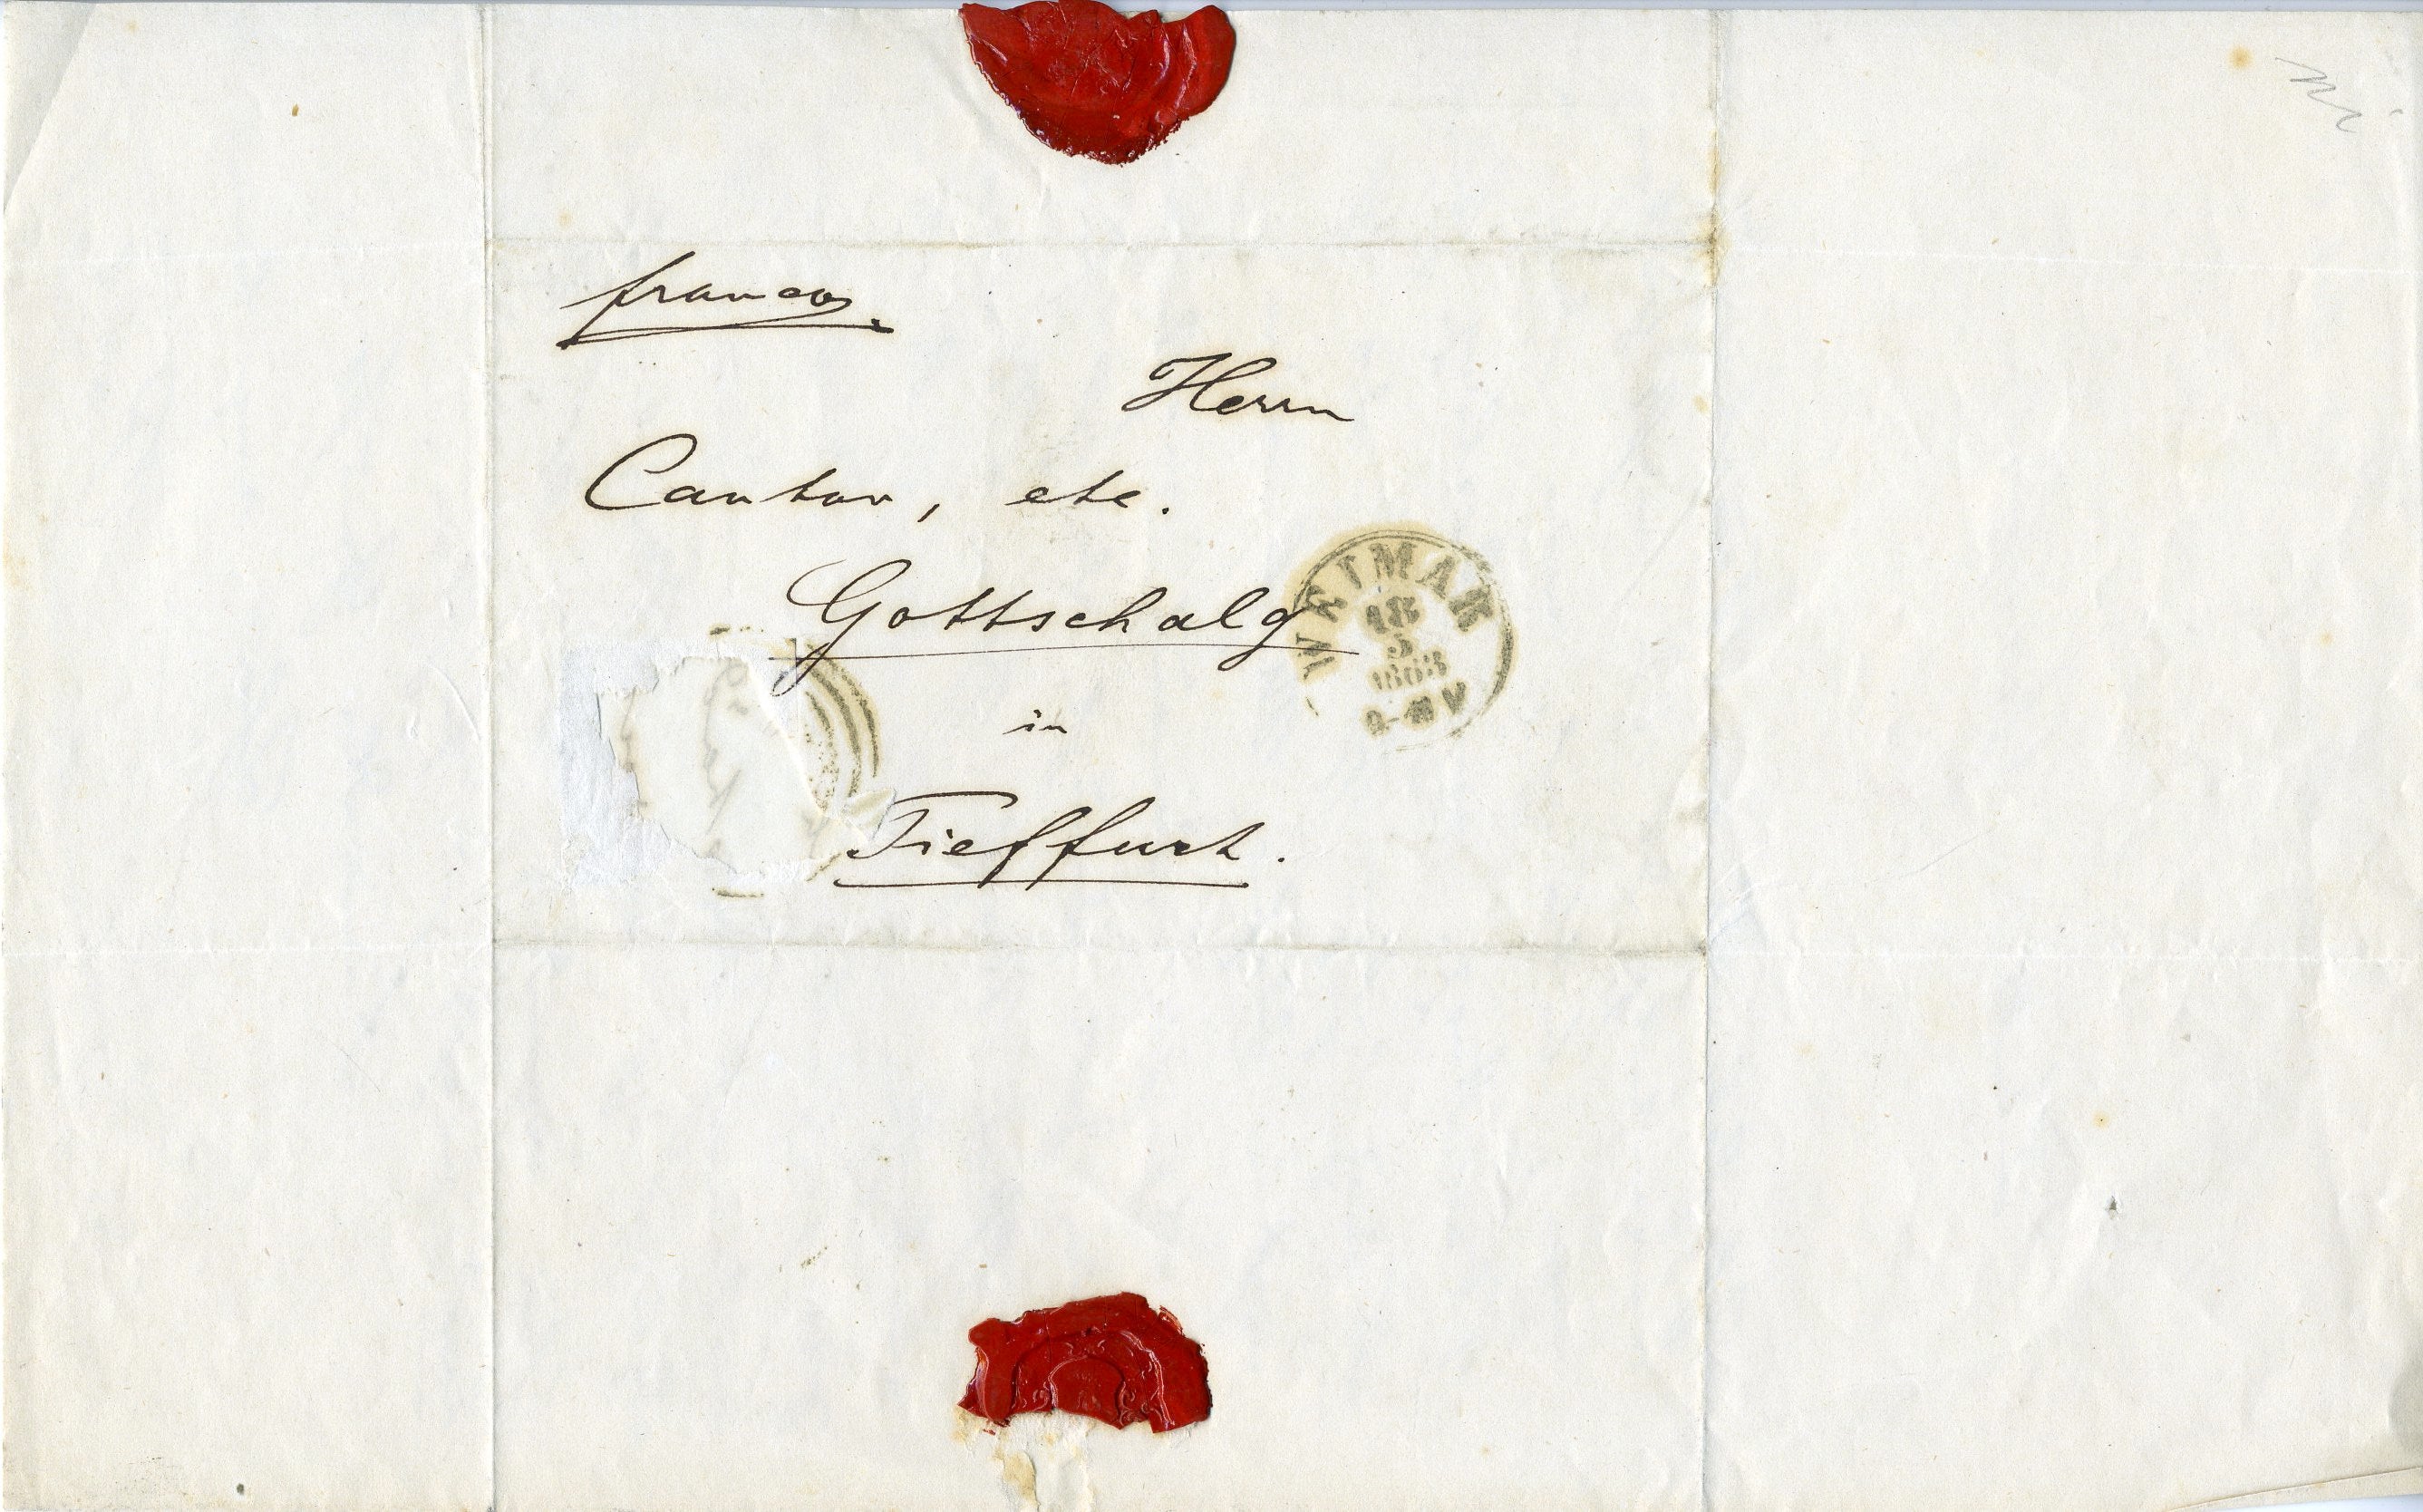 franco.
Herrn
Cantor, etc.
Gottschalg
WEIMAR
18
5
1863
in
Tieffurt.